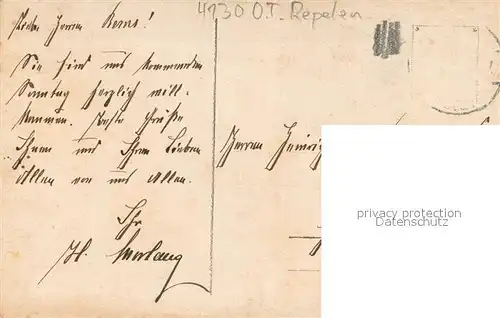 4130 O.T. Repelen
Herrn
Sie sind uns kommenden
Sonntag herzlich will-
kommen. Beste Grüße
Ihnen und Ihren Lieben
Allen von uns Allen.
Ihr
H.
Herrn Heinrich
privacy protection
Datenschutz